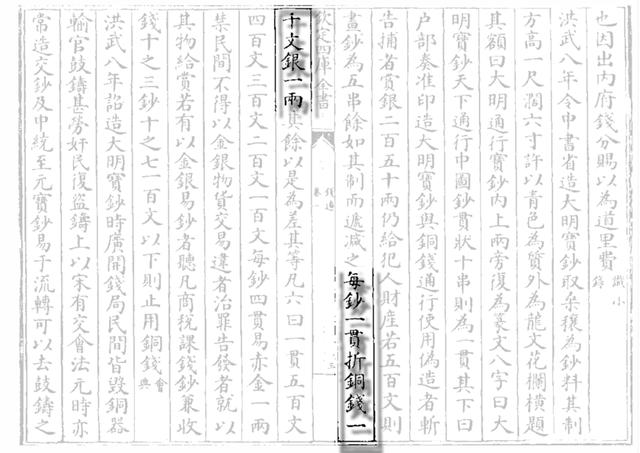 也因出内府錢分賜以為道里費識小錄
洪武八年令中書省造大明寶鈔取桒穰為鈔料其制
方高一尺濶六寸許以青色為質外為龍文花欄橫題
其額曰大明通行寶鈔内上兩旁復為篆文八字曰大
明寶鈔天下通行中圖鈔貫狀十串則為一貫其下曰
户部奏准印造大明寶鈔與銅錢通行使用偽造者斬
告捕者賞銀二百五十兩仍給犯人財産若五百文則
畫鈔為五串餘如其制而遞減之每鈔一貫折銅錢一
欽定四庫全書
錢通
卷
千文銀一兩其餘以是為差其等凡六曰一貫五百文
四百文三百文二百文一百文每鈔四貫易赤金一兩
禁民間不得以金銀物貨交易違者治罪告發者就以
其物給賞若有以金銀易鈔者聽凡商稅課錢鈔兼收
錢十之三鈔十之七一百文以下則止用銅錢會典
洪武八年詔造大明寶鈔時廣開錢局民間皆毁銅器
輸官鼓鑄甚勞奸民復盜鑄上以宋有交會法元時亦
常造交鈔及中統至元寶鈔易于流轉可以去鼓鑄之